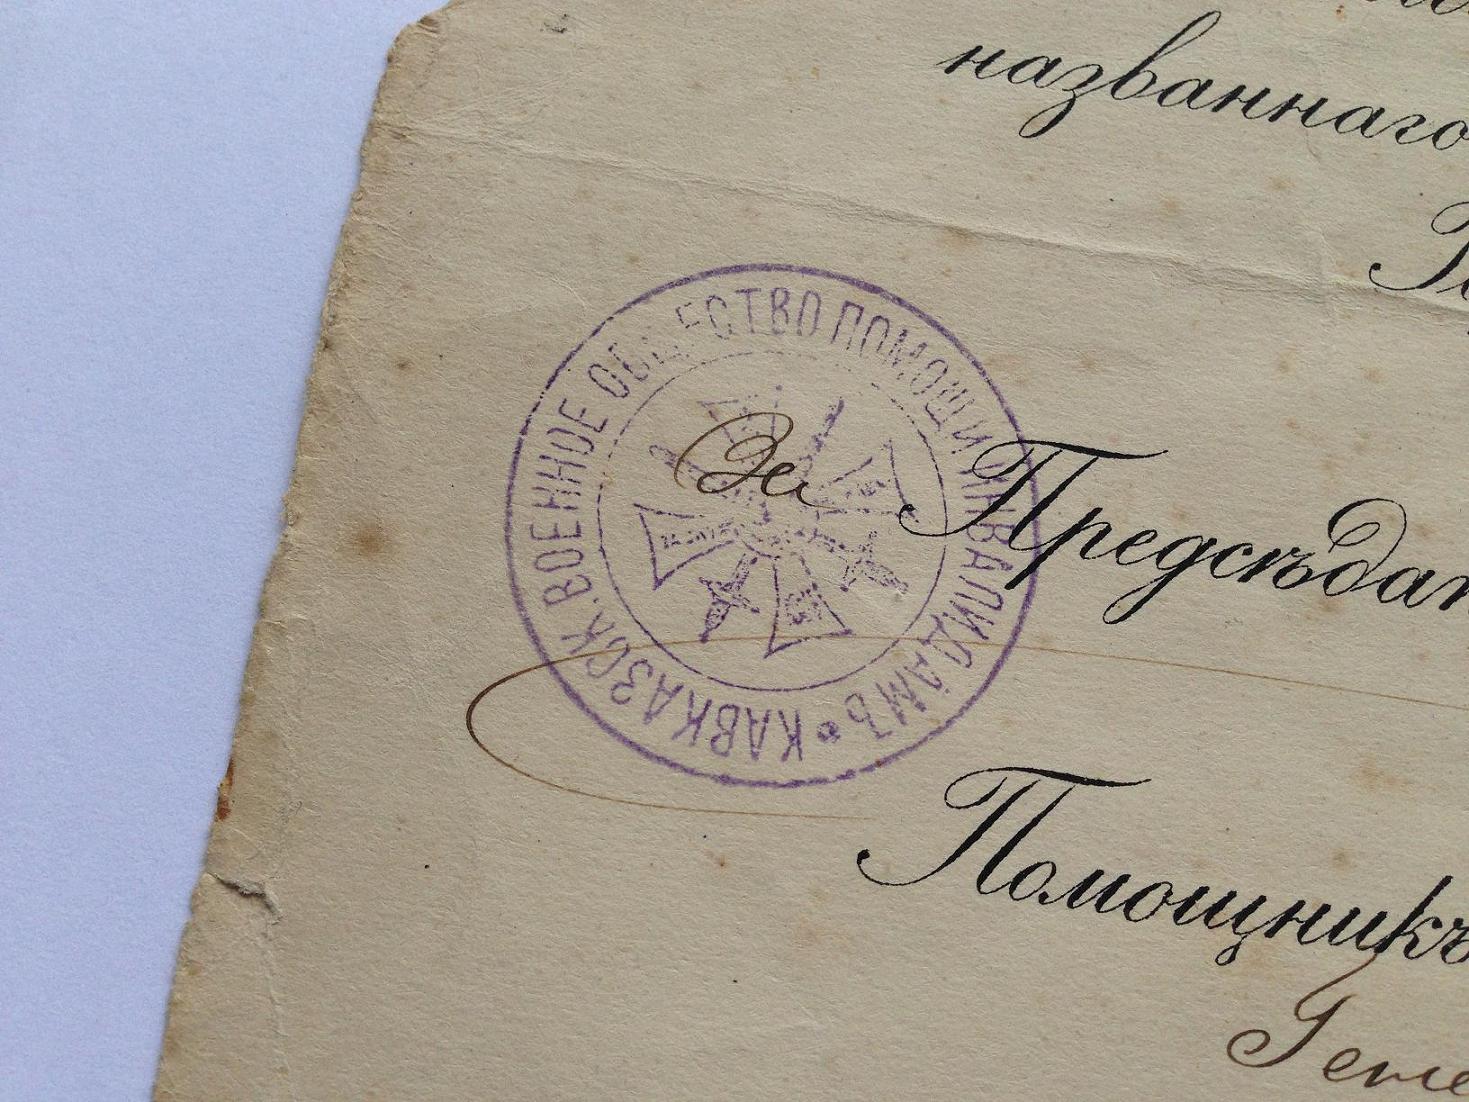 названнаго
КАВКАЗСК. ВОЕННОЕ ОБЩЕСТВО ПОМОЩИ ИНВАЛИДАМЪ
За Предсѣдат
Помощникъ
Гене